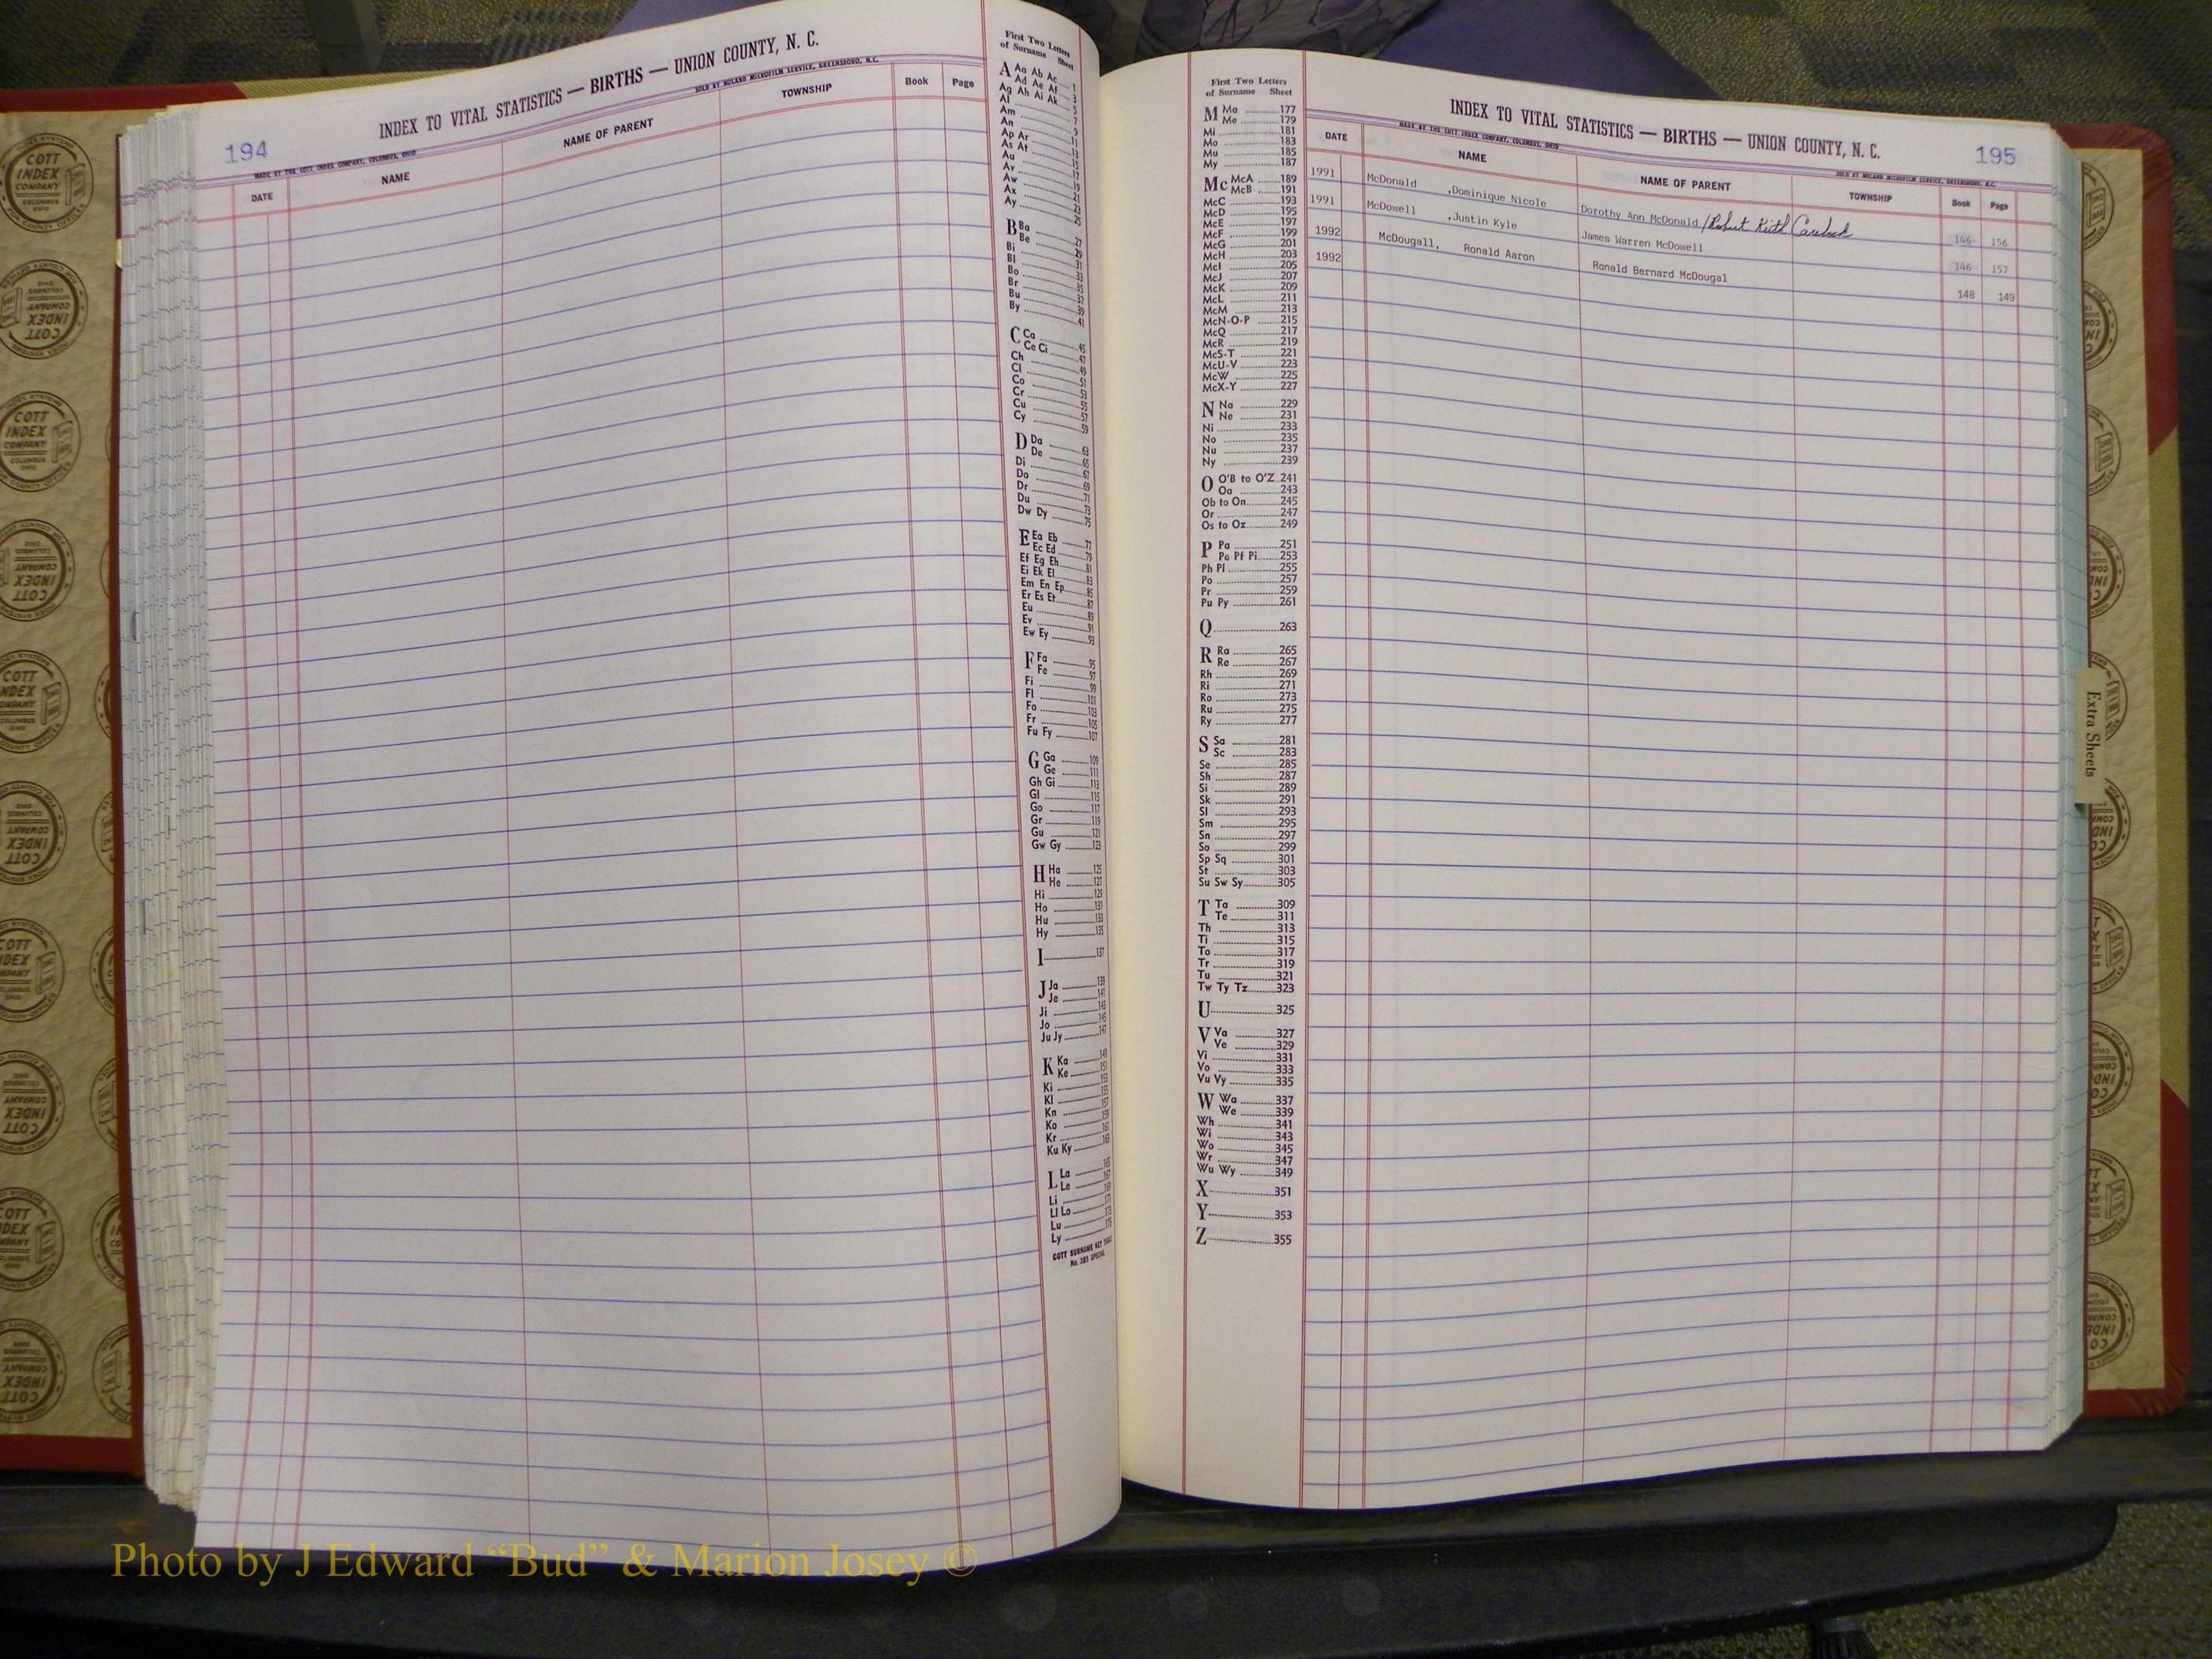 194
INDEX TO VITAL STATISTICS — BIRTHS — UNION COUNTY, N. C.
MADE BY THE COTT INDEX COMPANY, COLUMBUS, OHIO
SOLD BY NOLAND MICROFILM SERVICE, GREENSBORO, N.C.
DATE NAME NAME OF PARENT TOWNSHIP Book Page
First Two Letters
of Surname Sheet
A Aa Ab Ac 1
Ad Ae Af 3
Ag Ah Ai Ak 5
Al 7
Am 9
An 11
Ap Ar 13
As At 15
Au 17
Av 19
Aw 21
Ax 23
Ay 25
B Ba 27
Be 29
Bi 31
Bl 33
Bo 35
Br 37
Bu 39
By 41
C Ca 45
Ce Ci 47
Ch 49
Cl 51
Co 53
Cr 55
Cu 57
Cy 59
D Da 63
De 65
Di 67
Do 69
Dr 71
Du 73
Dw Dy 75
E Ea Eb 77
Ec Ed 79
Ef Eg Eh 81
Ei Ek El 83
Em En Ep 85
Er Es Et 87
Eu 89
Ev 91
Ew Ey 93
F Fa 95
Fe 97
Fi 99
Fl 101
Fo 103
Fr 105
Fu Fy 107
G Ga 109
Ge 111
Gh Gi 113
Gl 115
Go 117
Gr 119
Gu 121
Gw Gy 123
H Ha 125
He 127
Hi 129
Ho 131
Hu 133
Hy 135
I 137
J Ja 139
Je 141
Ji 143
Jo 145
Ju Jy 147
K Ka 149
Ke 151
Ki 153
Kl 155
Kn 157
Ko 159
Kr 161
Ku Ky 163
L La 165
Le 167
Li
Ll Lo
Lu
Ly
COTT SURNAME KEY TABLE
No. 285 SPECIAL
First Two Letters
of Surname Sheet
M Ma 177
Me 179
Mi 181
Mo 183
Mu 185
My 187
Mc McA 189
McB 191
McC 193
McD 195
McE 197
McF 199
McG 201
McH 203
McI 205
McJ 207
McK 209
McL 211
McM 213
McN-O-P 215
McQ 217
McR 219
McS-T 221
McU-V 223
McW 225
McX-Y 227
N Na 229
Ne 231
Ni 233
No 235
Nu 237
Ny 239
O O'B to O'Z 241
Oa 243
Ob to On 245
Or 247
Os to Oz 249
P Pa 251
Pe Pf Pi 253
Ph Pl 255
Po 257
Pr 259
Pu Py 261
Q 263
R Ra 265
Re 267
Rh 269
Ri 271
Ro 273
Ru 275
Ry 277
S Sa 281
Sc 283
Se 285
Sh 287
Si 289
Sk 291
Sl 293
Sm 295
Sn 297
So 299
Sp Sq 301
St 303
Su Sw Sy 305
T Ta 309
Te 311
Th 313
Ti 315
To 317
Tr 319
Tu 321
Tw Ty Tz 323
U 325
V Va 327
Ve 329
Vi 331
Vo 333
Vu Vy 335
W Wa 337
We 339
Wh 341
Wi 343
Wo 345
Wr 347
Wu Wy 349
X 351
Y 353
Z 355
INDEX TO VITAL STATISTICS — BIRTHS — UNION COUNTY, N. C.
195
MADE BY THE COTT INDEX COMPANY, COLUMBUS, OHIO
SOLD BY NOLAND MICROFILM SERVICE, GREENSBORO, N.C.
DATE NAME NAME OF PARENT TOWNSHIP Book Page
1991 McDonald ,Dominique Nicole Dorothy Ann McDonald / Robert Keith 146 156
1991 McDowell ,Justin Kyle James Warren McDowell 146 157
1992 McDougall, Ronald Aaron Ronald Bernard McDougal 148 149
1992
Extra Sheets
COTT
INDEX
COMPANY
Photo by J Edward “Bud” & Marion Josey ©